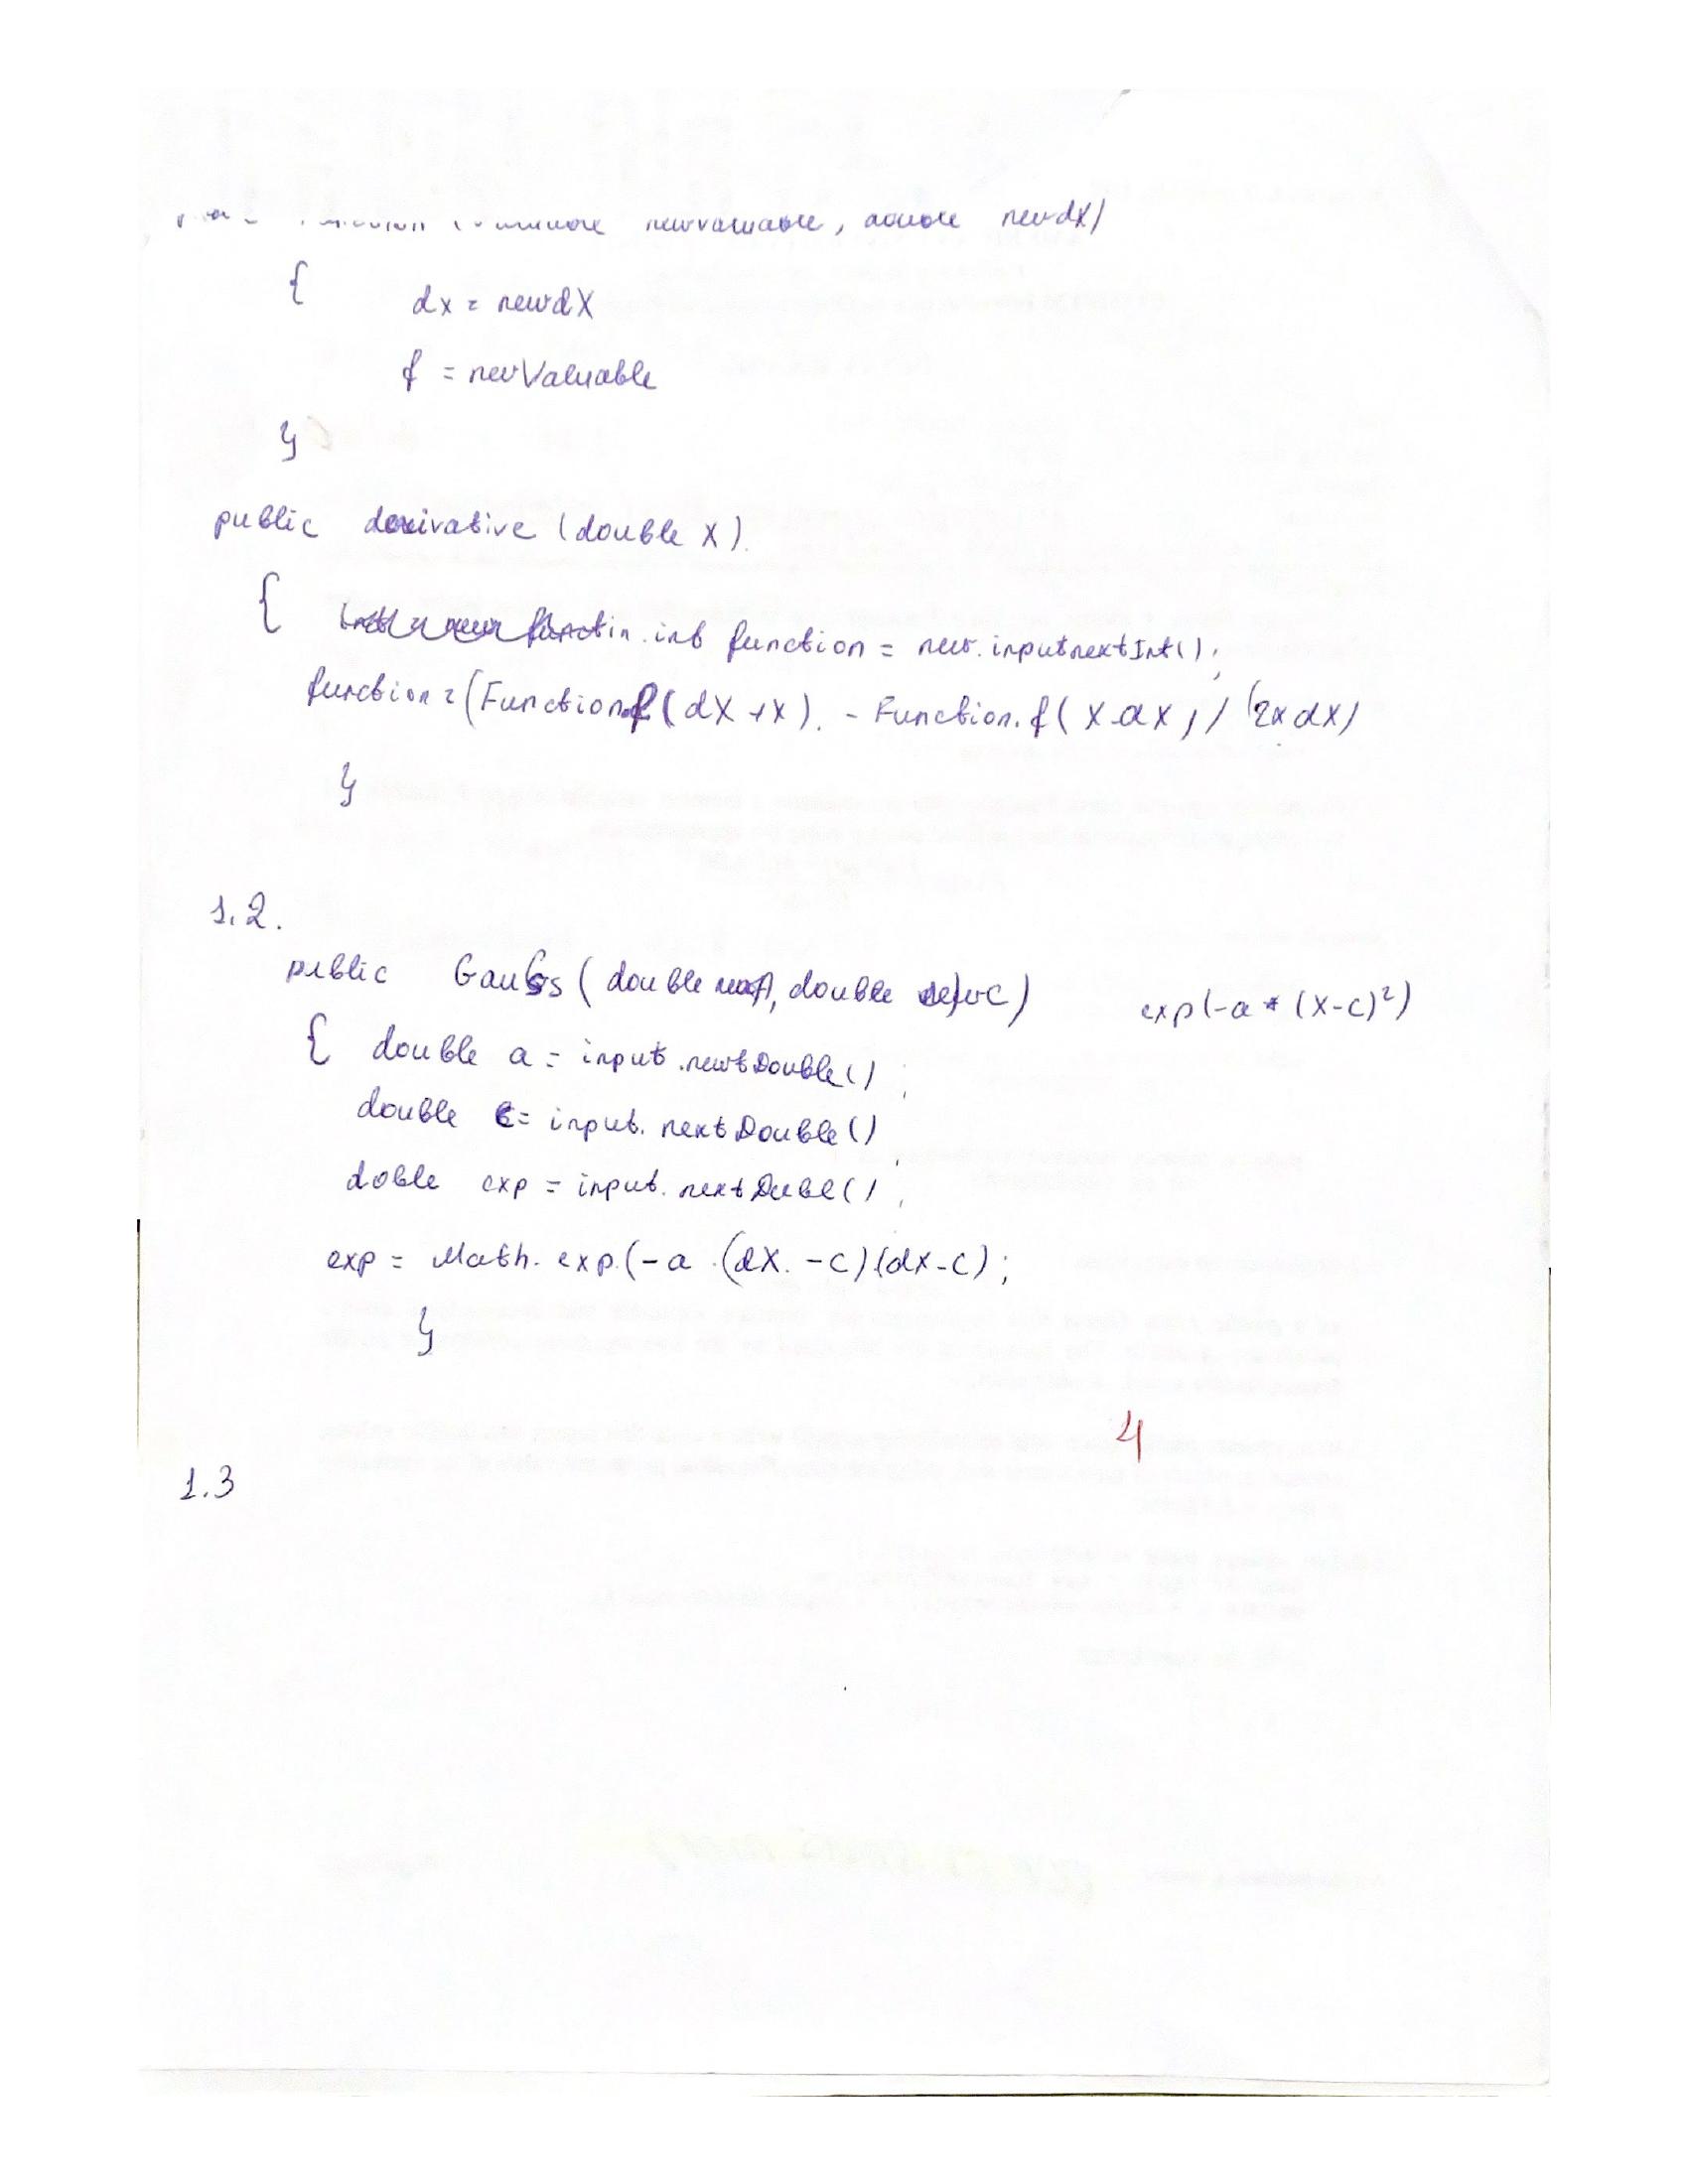 newvaluable, double newdX)
{ dx = newdX
f = newValuable
}
public derivative (double x).
{ int function = new.inputnextInt();
function = (Function.f(dX+x). - Function.f(x-dx)/(2xdx)
}
1.2.
public Gauss (double newA, double newC) exp(-a * (x-c)²)
{ double a = input.newtDouble();
double c = input.nextDouble();
doble exp = input.nextDuble();
exp = Math.exp.(-a.(dX.-c)(dx-c);
}
4
1.3